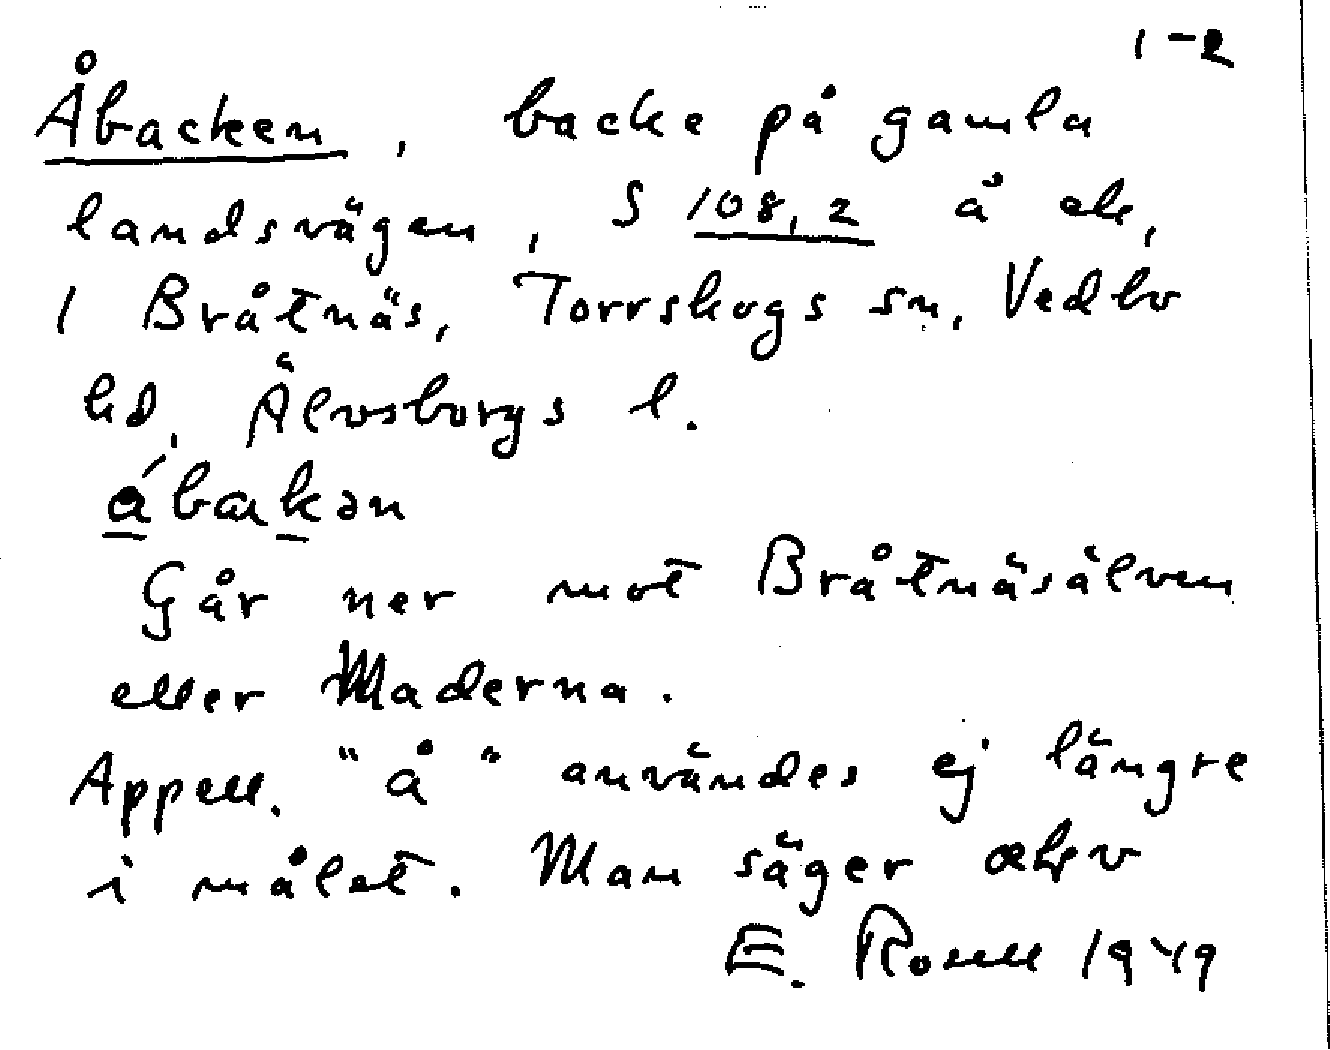 1-2
Åbacken, backe på gamla
landsvägen, S 108,2 å ek,
1 Bråtnäs, Torrskogs sn, Vedbo
hd, Älvsborgs l.
Går ner mot Bråtnäsälven
eller Maderna.
Appell. "å" användes ej längre
i målet. Man säger
E. Rosell 1949